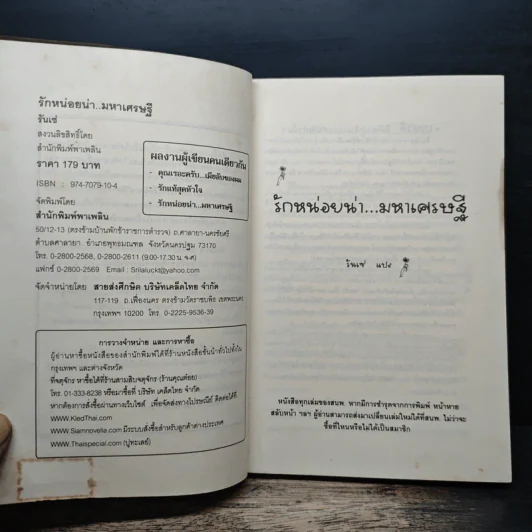 รักหน่อยน่า..มหาเศรษฐี
รันเซ่
สงวนลิขสิทธิ์โดย
สำนักพิมพ์พาเพลิน
ราคา 179 บาท
ISBN : 974-7079-10-4
ผลงานผู้เขียนคนเดียวกัน
- คุณเรอะครับ...เมียลับของผม
- รักแท้สุดหัวใจ
- รักหน่อยน่า...มหาเศรษฐี
จัดพิมพ์โดย
สำนักพิมพ์พาเพลิน
50/12-13 (ตรงข้ามบ้านพักข้าราชการตำรวจ) ถ.ศาลายา-นครชัยศรี
ตำบลศาลายา อำเภอพุทธมณฑล จังหวัดนครปฐม 73170
โทร. 0-2800-2568, 0-2800-2611 (9.00-17.30 น. จ-ศ)
แฟกซ์ 0-2800-2569 Email : Srilaluckt@yahoo.com
จัดจำหน่ายโดย สายส่งศึกษิต บริษัทเคล็ดไทย จำกัด
117-119 ถ.เฟื่องนคร ตรงข้ามวัดราชบพิธ เขตพระนคร
กรุงเทพฯ 10200 โทร. 0-2225-9536-39
การวางจำหน่าย และการหาซื้อ
ผู้อ่านหาซื้อหนังสือของสำนักพิมพ์ได้ที่ร้านหนังสือชั้นนำทั่วไปทั้งใน
กรุงเทพฯ และต่างจังหวัด
ที่จตุจักร หาซื้อได้ที่ร้านสามสิบจตุจักร (ร้านคุณต๋อย)
โทร. 01-333-8238 หรือมาซื้อที่ บริษัท เคล็ดไทย จำกัด
หากต้องการสั่งซื้อผ่านทางเว็บไซต์ เพื่อจัดส่งทางไปรษณีย์ ติดต่อได้ที่
WWW.KledThai.com
WWW.Siamnovella.com มีระบบสั่งซื้อสำหรับลูกค้าต่างประเทศ
WWW.Thaispecial.com (ปูทะเลย์)
รักหน่อยน่า...มหาเศรษฐี
รันเซ่ แปล
หนังสือทุกเล่มของสนพ. หากมีการชำรุดจากการพิมพ์ หน้าหาย
สลับหน้า ฯลฯ ผู้อ่านสามารถส่งมาเปลี่ยนเล่มใหม่ได้ที่สนพ. ไม่ว่าจะ
ซื้อที่ไหนหรือไม่ได้เป็นสมาชิก